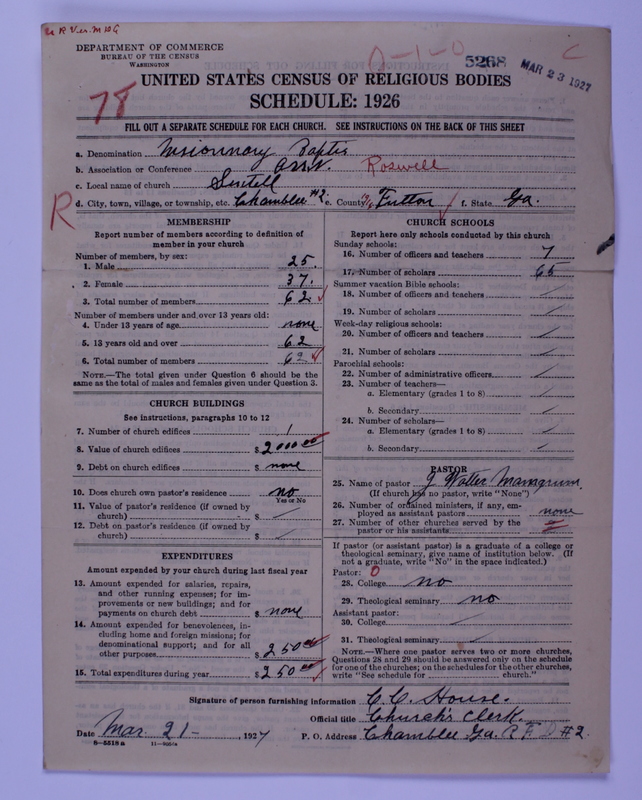 DEPARTMENT OF COMMERCE
BUREAU OF THE CENSUS
WASHINGTON
5268
MAR 23 1927
C
78
UNITED STATES CENSUS OF RELIGIOUS BODIES
SCHEDULE: 1926
FILL OUT A SEPARATE SCHEDULE FOR EACH CHURCH. SEE INSTRUCTIONS ON THE BACK OF THIS SHEET
a. Denomination Missionary Baptis
b. Association or Conference Roswell
c. Local name of church
R d. City, town, village, or township, etc. Chamblee #2 e. County Fulton f. State Ga.
MEMBERSHIP
Report number of members according to definition of
member in your church
Number of members, by sex:
1. Male 25.
2. Female 37.
3. Total number of members 62
Number of members under and over 13 years old:
4. Under 13 years of age none
5. 13 years old and over 62
6. Total number of members 62
NOTE.—The total given under Question 6 should be the
same as the total of males and females given under Question 3.
CHURCH BUILDINGS
See instructions, paragraphs 10 to 12
7. Number of church edifices 1
8. Value of church edifices $ 2000 00
9. Debt on church edifices $ none
10. Does church own pastor's residence no
Yes or No
11. Value of pastor's residence (if owned by
church) $
12. Debt on pastor's residence (if owned by
church) $
EXPENDITURES
Amount expended by your church during last fiscal year
13. Amount expended for salaries, repairs,
and other running expenses; for im-
provements or new buildings; and for
payments on church debt $ none
14. Amount expended for benevolences, in-
cluding home and foreign missions; for
denominational support; and for all
other purposes $ 250
15. Total expenditures during year $ 250
CHURCH SCHOOLS
Report here only schools conducted by this church
Sunday schools:
16. Number of officers and teachers 7
17. Number of scholars 65
Summer vacation Bible schools:
18. Number of officers and teachers
19. Number of scholars
Week-day religious schools:
20. Number of officers and teachers
21. Number of scholars
Parochial schools:
22. Number of administrative officers
23. Number of teachers—
a. Elementary (grades 1 to 8)
b. Secondary
24. Number of scholars—
a. Elementary (grades 1 to 8)
b. Secondary
PASTOR
25. Name of pastor J Walter
(If church has no pastor, write "None")
26. Number of ordained ministers, if any, em-
ployed as assistant pastors none
27. Number of other churches served by the
pastor or his assistants
If pastor (or assistant pastor) is a graduate of a college or
theological seminary, give name of institution below. (If
not a graduate, write "No" in the space indicated.)
Pastor: 0
28. College no
29. Theological seminary no
Assistant pastor:
30. College
31. Theological seminary
NOTE.—Where one pastor serves two or more churches,
Questions 28 and 29 should be answered only on the schedule
for one of the churches; on the schedules for the other churches,
write "See schedule for church."
Signature of person furnishing information C. C. House.
Official title Church's Clerk.
Date Mar. 21 - , 1927 P. O. Address Chamblee Ga. R F D #2.
8-5518 a